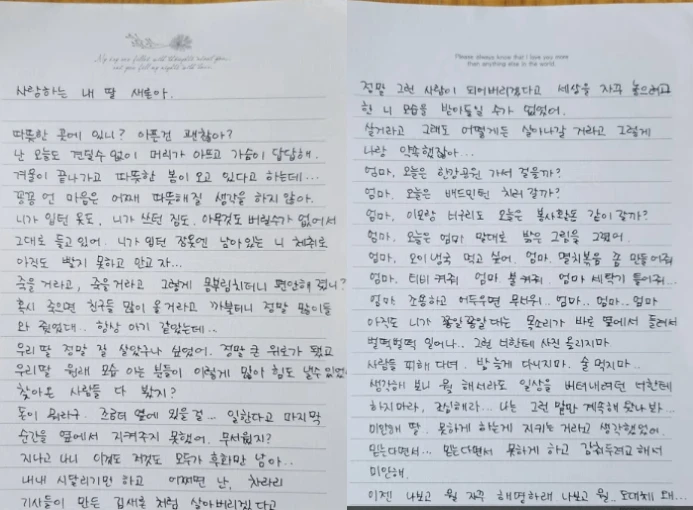 My day are filled with thoughts about you
and you fill my nights with love.
사랑하는 내 딸 새론아.
따뜻한 곳에 있니? 아픈건 괜찮아?
난 오늘도 견딜수 없이 머리가 아프고 가슴이 답답해.
겨울이 끝나가고 따뜻한 봄이 오고 있다고 하는데...
꽁꽁 언 마음은 어째 따뜻해질 생각을 하지 않아.
니가 입던 옷도, 니가 쓰던 짐도. 아무것도 버릴수가 없어서
그대로 들고 있어. 니가 입던 잠옷엔 남아있는 니 체취로
아직도 빨지 못하고 안고 자...
죽을 거라고, 죽을거라고 그렇게 몸부림치더니 편안해 졌니?
혹시 죽으면 친구들 많이 올거라고 까부터니 정말 많이들
와 줬었대. 항상 아기 같았는데..
우리 딸 정말 잘 살았구나 싶었어. 정말 큰 위로가 됐고
우리딸 원래 모습 아는 분들이 이렇게 많아 힘도 낼수 있었어
찾아온 사람들 다 봤지?
돈이 뭐라구. 조금더 옆에 있을 걸... 일한다고 마지막
순간을 옆에서 지켜주지 못했어. 무서웠지?
지나고 나니 이것도 저것도 모두가 후회만 남아..
내내 시달리기만 하고 어쩌면 난, 차라리
기사들이 만든 김새론 처럼 살아버리겠다고
Please always know that I love you more
than anything else in the world.
정말 그런 사람이 되어버리겠다고 세상을 자꾸 놓으려고
한 니 모습을 받아들일 수가 없었어.
살거라고 그래도 어떻게든 살아나갈 거라고 그렇게
나랑 약속했잖아...
엄마, 오늘은 한강공원 가서 걸을까?
엄마, 오늘은 배드민턴 치러 갈까?
엄마, 이모랑 너구리도 오늘은 복사하러 같이 갈까?
엄마, 오늘은 엄마 말대로 밝은 그림을 그렸어.
엄마, 오이냉국 먹고 싶어. 엄마. 멸치볶음 좀 만들어줘
엄마. 티비 켜줘 엄마 불 켜줘. 엄마 세탁기 돌려줘...
엄마. 조용하고 어두우면 무서워.. 엄마.. 엄마.. 엄마
아직도 니가 쫑알쫑알대는 목소리가 바로 옆에서 들려서
벌떡벌떡 일어나.. 그런 너한테 사진 올리지마
사람들 피해 다녀. 밤 늦게 다니지마. 술 먹지마..
생각해 보니 뭘 해서라도 일상을 버텨내려던 너한테
하지마라, 조심해라... 나는 그런 말만 계속해 왔나봐...
미안해 딸. 못하게 하는게 지키는 거라고 생각했었어.
믿는다면서... 믿는다면서 못하게 하고 감춰두려고 해서
미안해.
이젠 나보고 뭘 자꾸 해명하래 나보고 뭘.. 도대체 왜...